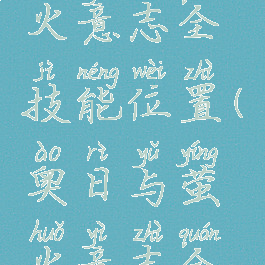 火意志全
jì néng wèi zhì
技能位置(
ào rì yǔ yíng
奥日与萤
huǒ yì zhì quán
火意志全